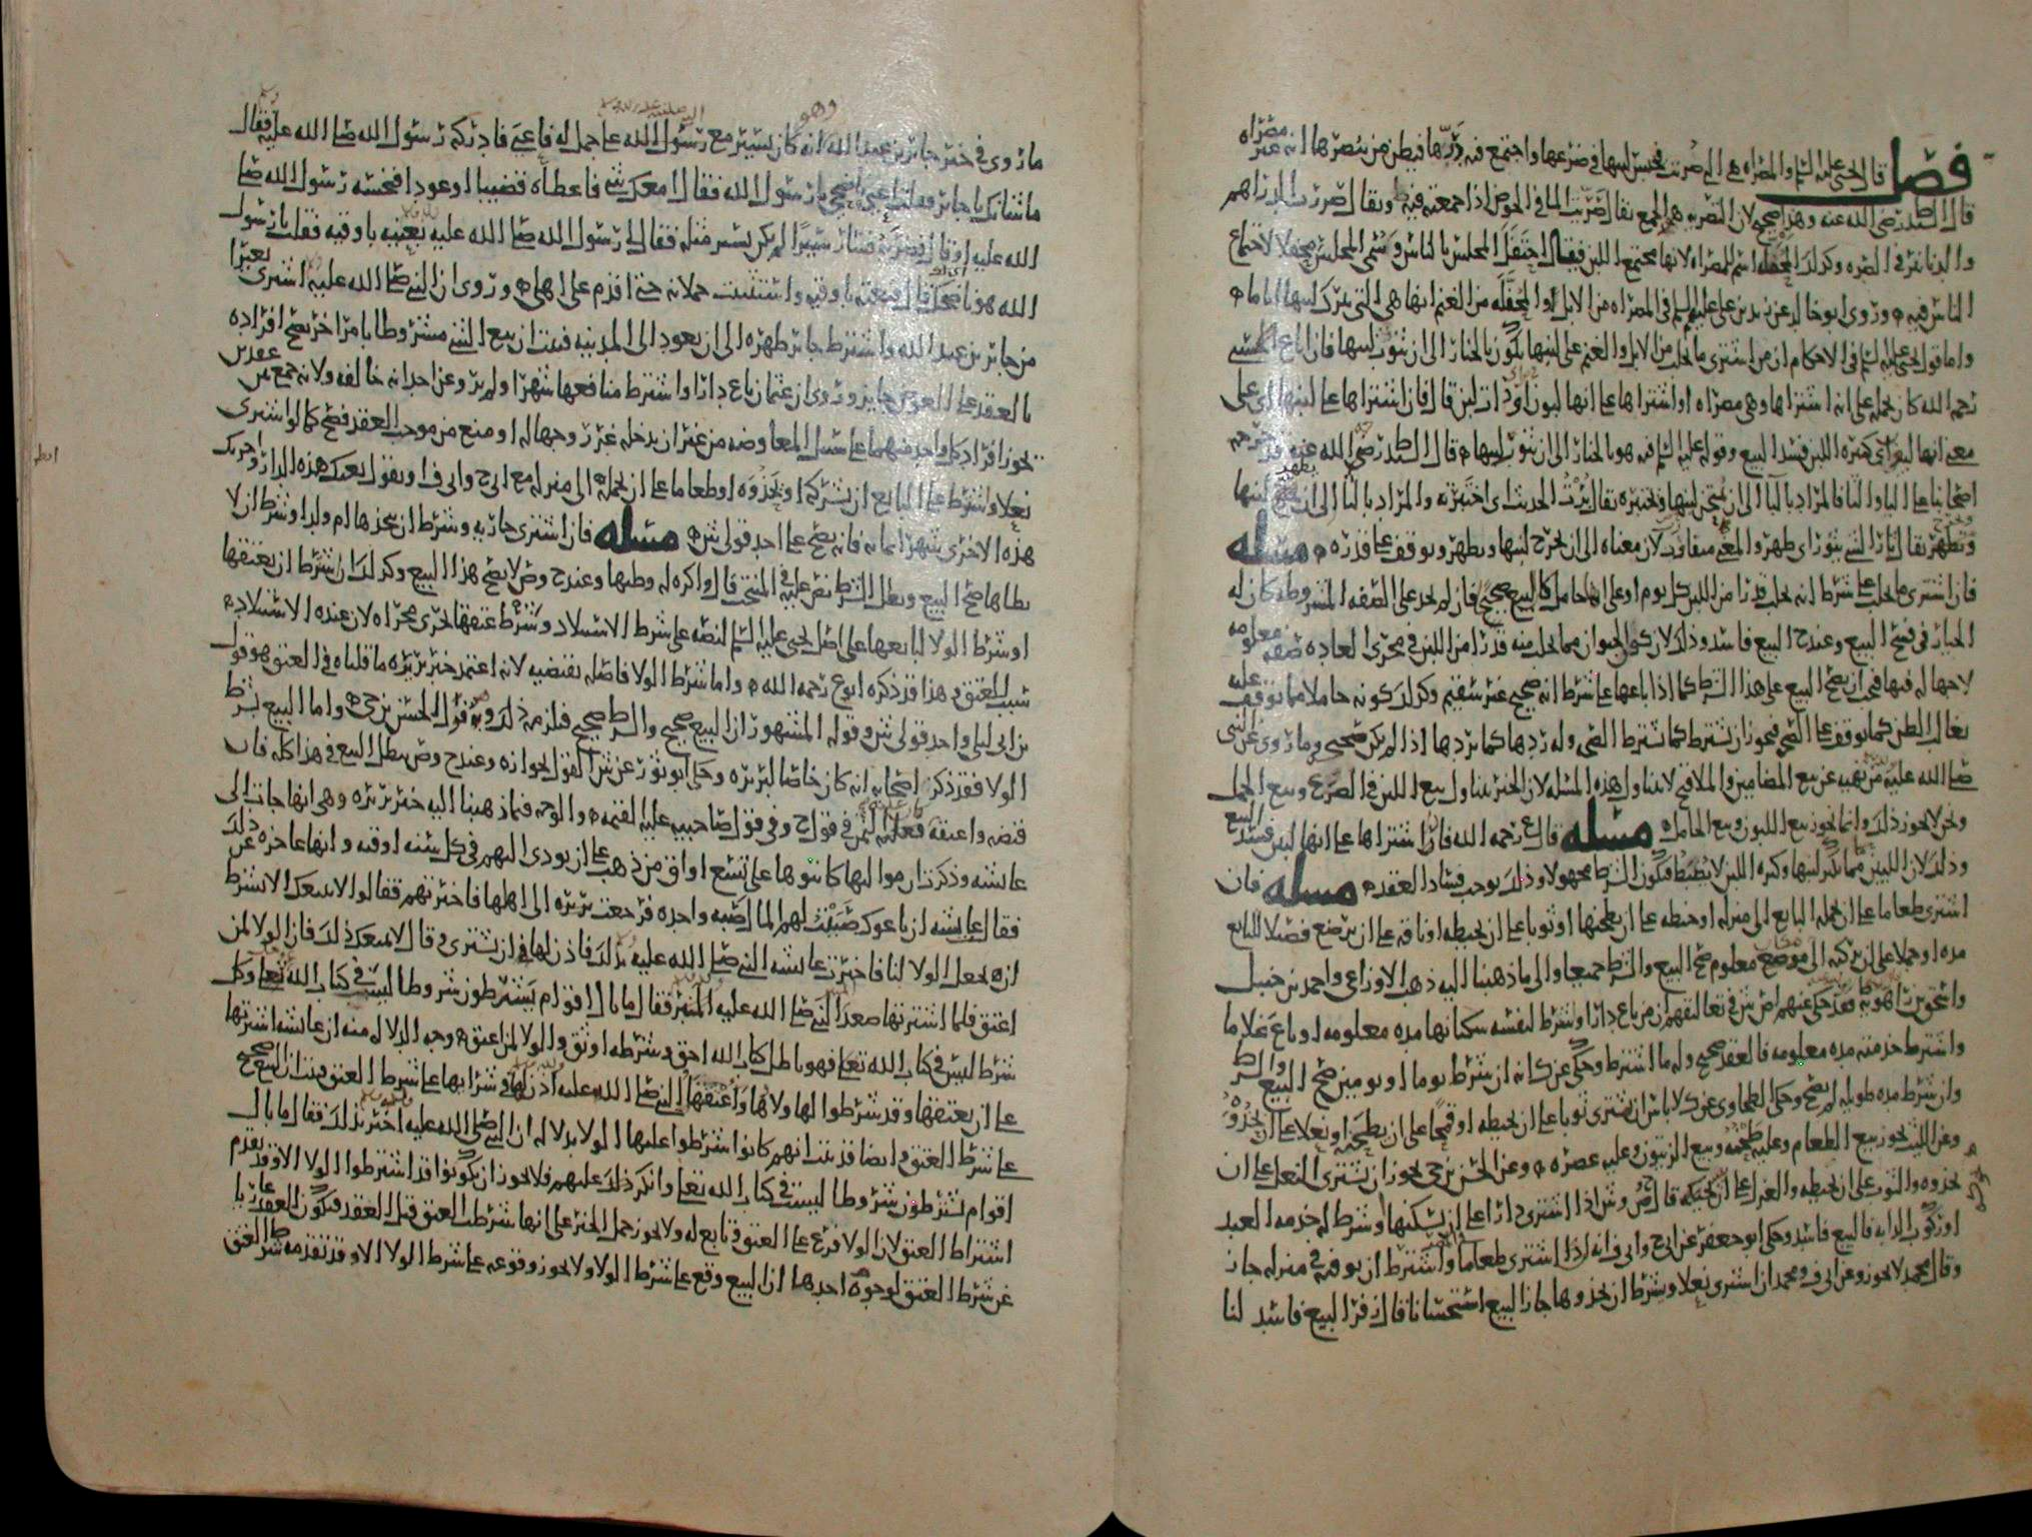 فصل قال الهادي عليه السلم والمصراه هي التي صُريت فحبس لبنها في ضرعها واجتمع فيه دَرّها فيظن من يبصرها انه غزراه
قال السيد رضي الله عنه وهذا صحيح لان التصريه هي الجمع يقال صَرّيت الما في الحوض اذا جمعته فيه ويقال صررت الدراهم
والدنانير في الصره وكذلك المحفله اسم للمصراه لانها مجتمع اللبن فيقال احتَفَلَ المجلس بالناس وسُمي المجلس محفلا لاجتماع
الناس فيه وروى ابو خالد عن زيد بن علي عليهم السلم في المصراه من الابل والمحَفَلَه من الغنم انها هي التي يترك لبنها اياما
واما قول الهادي عليه السلم في الاحكام ان من اشترى ما يحلب من الابل والغنم على لبنها يكون بالخيار الى ان
رحمه الله كان يحمله على انه اشتراها وهي مصراه او اشتراها على انها لبون او ذات لبن قال فان اشتراها على لبنها اي على
معنى انها كثيره اللبن فسد البيع وقوله عليه السلم فيه هو بالخيار الى ان لبنها قال السيد رضي الله عنه
لبنها ويختبره يقال الحديث اي اختبرته والمراد
معناه الى ان يخرج لبنها ويظهر ويوقف على قدره مسله
فان اشترى ما يحلب على شرط انه يحلب قدرا من اللبن كل يوم او على انها حامل كان البيع صحيحا فان لم يجد على الصفه المشروطه كان له
الخيار في فسخ البيع وعند ح البيع فاسد وذلك لان كون الحيوان مما يحلب منه قدرا من اللبن في مجرى العاده صفه معلومه
لا جهاله فيها فيجب ان يصح البيع على هذا الشرط كما اذا باعها على شرط انه صحيح غير سقيم وكذلك كونه حاملا مما يوقف عليه
بغالب الظن كما يوقف على فيجوز ان يشترط كما تشترط وله ردها كما يردها اذا لم يكن صحيحا وما روي عن النبي
صلى الله عليه من نهيه عن بيع المضامين والملاقيح لا يتناول هذه المسله لان الخبر يتناول بيع اللبن في الضرع وبيع الحمل
ونحن لا نجوز ذلك وانما نجوز بيع اللبون وبيع الحامل مسله قال ع رحمه الله فان اشتراها على انها لبن فسد البيع
وذلك لان اللبن مما يكثر لبنها وكثره اللبن لا ينضبط فيكون الشرط مجهولا وذلك يوجب فساد العقد مسله فان
اشترى طعاما على ان يحمله البايع الى منزله او حنطه على ان يطحنها او ثوبا على ان يخيطه او ناقه على ان يرضع فصيلا للبايع
مده او جملا على ان يركبه الى موضع معلوم صح البيع والشرط جميعا والى ما ذهبنا اليه ذهب الاوزاعي واحمد بن حنبل
واسحق بن راهويه فقد حكى عنهم ان من باع دارا وشرط لنفسه سكناها مده معلومه او باع غلاما
واشترط خدمته مده معلومه فالعقد صحيح وله ما اشترط وحكي عن ك انه ان شرط يوما او يومين صح البيع والشرط
وان شرط مده طويله لم يصح وحكى الطحاوي عن ك لا باس ان يشتري ثوبا على ان يخيطه او قمحا على ان يطحنه او نعلا على ان يحذوه
وعن الليث يجوز بيع الطعام وعليه طحنه وبيع الزيتون وعليه عصره وعن الحسن بن حي يجوز ان يشتري النعل على ان
يحذوه والثوب على ان يخيطه والغزل على ان يحيكه قال وش اذا اشترى دارا على ان يسكنها او شرط له خدمه العبد
او ركوب الدابه فالبيع فاسد وحكى ابو جعفر عن ابي ح وابي ف انه اذا اشترى طعاما واشترط ان يوفيه في منزله جاز
وقال محمد لا يجوز وعن ابي ف ومحمد ان اشترى نعلا وشرط ان يحذوها جاز البيع استحسانا قال زفر البيع فاسد لنا
ما روي في خبر جابر بن عبد الله انه كان يسير مع رسول الله على جمل له فاعيى فادركه رسول الله صلى الله عليه فقال
ما شانك يا جابر فقلت اعيى ناضحي يا رسول الله فقال امعك شي فاعطاه قضيبا او عودا فنخسه رسول الله صلى
الله عليه او قال فضربه فسار سيرا لم يكن يسير مثله فقال لي رسول الله صلى الله عليه بعنيه باوقيه فقلت يا رسول
الله هو ناضحك قال فبعته باوقيه واستثنيت حملانه حتى اقدم على اهلي وروي ان النبي صلى الله عليه اشترى بعيرا
من جابر بن عبد الله واشترط جابر ظهره الى ان يعود الى المدينه فثبت ان بيع الشي مشروطا بامر اخر يصح افراده
بالعقد على العوض جايز وروي ان عثمان باع دارا واشترط منافعها شهرا ولم يرو عن احد انه خالفه ولانه جمع بين عقدين
يجوز افراد كل واحد منهما على سبيل المعاوضه من غير ان يدخله غرر وجهاله او منع من موجب العقد فصح كما لو اشترى
نعلا وشرط على البايع ان يشركه او يحذوه او طعاما على ان يحمله الى منزله مع ابي ح وابي ف او يقول بعتك هذه الدار واجرتك
هذه الاخرى شهرا بمايه فانه يصح على احد قولي ش مسله فان اشترى جاريه وشرط ان يتخذها ام ولد او شرط ان لا
يطاها صح البيع وبطل الشرط نص عليه في المنتخب قال واكره له وطيها وعند ح وش لا يصح هذا البيع وكذلك ان شرط ان يعتقها
او شرط الولا لبايعها على اصل يحيى عليه السلم لنصه على شرط الاستيلاد وشَرْط عتقها يجري مجراه لان عنده الاستيلاد
سبب للعتق وهذا قد ذكره ابو ع رحمه الله واما شرط الولا فاصله يقتضيه لانه اعتمد خبر بريره ما قلناه في العتق هو قول
بن ابي ليلى واحد قولي ش وقوله المشهور ان البيع صحيح والشرط صحيح فلزمه ذلك وبه قول الحسن بن حي واما البيع بشرط
الولا فقد ذكر اصحابه انه كان خاصا لبريره وحكى ابو ثور عن ش القول بجوازه وعند ح وص يبطل البيع في هذا كله فان
قبضه واعتقه فعليه الثمن في قول ح وفي قول صاحبيه عليه القيمه والوجه فيما ذهبنا اليه خبر بريره وهي انها جات الى
عايشه وذكرت ان مواليها كاتبوها على تسع اواق من ذهب على ان يودى اليهم في كل سنه اوقيه وانها عاجزه عن ذلك
فقالت عايشه ان باعوك صَبَبْتُ لهم المال صَبّه واحده فرجعت بريره الى اهلها فاخبرتهم فقالوا لا نبيعك الا بشرط
ان يجعل الولا لنا فاخبرت عايشه النبي صلى الله عليه بذلك فاذن لها في ان تشتري وقال لا يمنعك ذلك فان الولا لمن
اعتق فلما اشترتها صعد النبي صلى الله عليه المنبر فقال ما بال اقوام يشترطون شروطا ليست في كتاب الله تعالى وكل
شرط ليس في كتاب الله تعالى فهو باطل كتاب الله احق وشرطه اوثق والولا لمن اعتق وجه الدلاله منه ان عايشه اشترتها
على ان يعتقها وقد شرطوا لها ولاها وَاعْتَقَها النبي صلى الله عليه اذن لها في شرايها على شرط العتق فثبت ان البيع صحيح
على شرط العتق وايضا قد ثبت انهم كانوا اشترطوا عليها الولا بدلاله ان النبي صلى الله عليه اخبر بذلك فقال ما بال
اقوام يشترطون شروطا ليست في كتاب الله تعالى وانكر ذلك عليهم فلا يجوز ان يكونوا قد اشترطوا الولا الا وقد تقدم
اشتراط العتق لان الولا فرع على العتق وتابع له ولا يجوز حمل الخبر على انها شرطت العتق قبل العقد فيكون العقد عاريا
عن شرط العتق لوجوه احدها ان البيع وقع على شرط الولا ولا يجوز وقوعه على شرط الولا الا وقد تقدمه شرط العتق